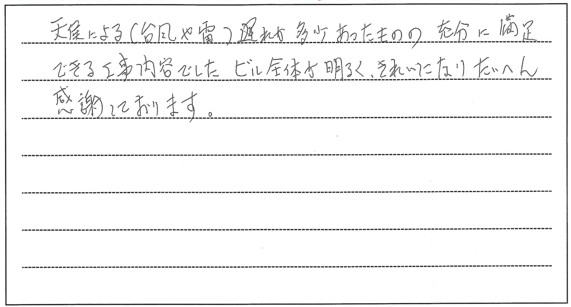 天候による(台風や雷)遅れが多少あったものの 充分に満足
できる工事内容でした ビル全体が明るく、きれいになりたいへん
感謝しております。